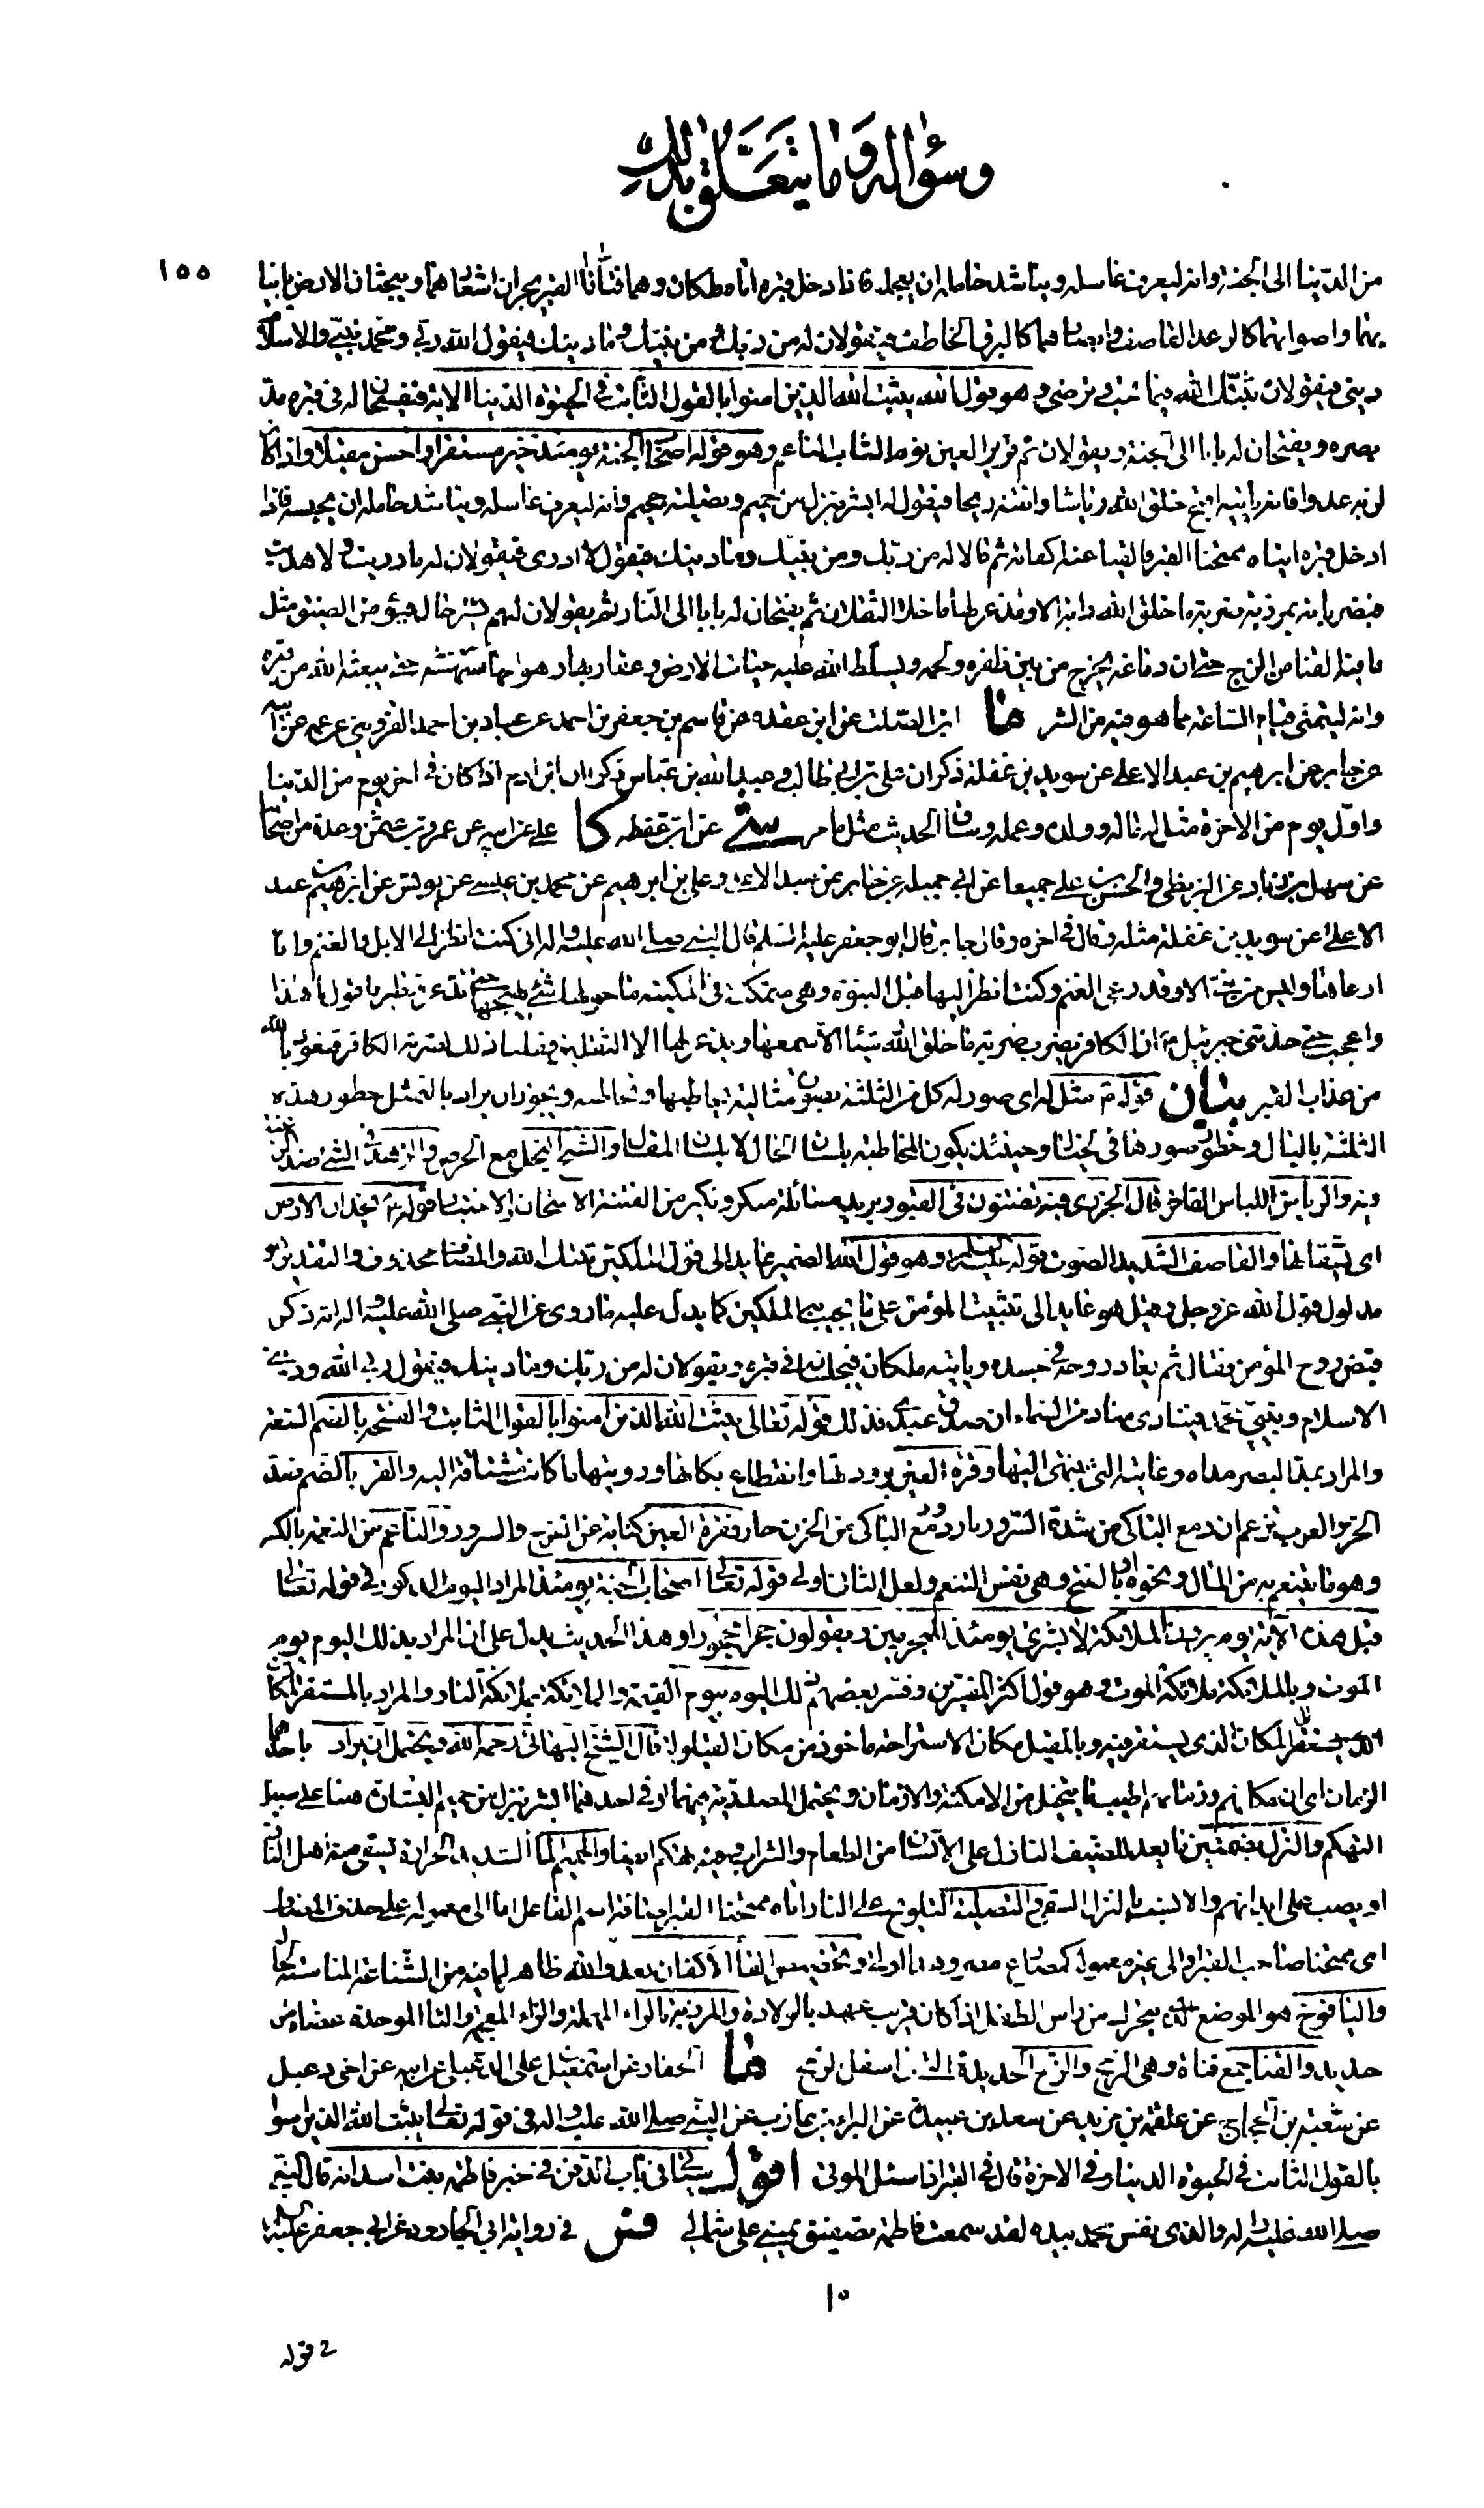 وسؤاله وما يتعلق بذلك
١٥٥
من الدّنيا الى الجنّة وانه ليعرف غاسله ويناشد حامله ان يعجله فاذا دخل قبره اتاه ملكان وهما فتّانا القبر يجران اشعارهما ويبحثان الارض بانيا
بهما واصواتهما كالرعد القاصف وابصارهما كالبرق الخاطف فيقولان له من ربّك ومن نبيّك وما دينك فيقول الله ربّي ومحمّد نبيّي والاسلام
ديني فيقولان ثبّتك الله فيما تحب وترضى وهو قول الله يثبّت الله الذين امنوا بالقول الثابت في الحيوة الدّنيا الاية فيفسحان له في قبره مدّ
بصره ويفتحان له بابا الى الجنة ويقولان نم قرير العين نوم الشاب الناعم وهو قوله اصحاب الجنة يومئذ خير مستقرا واحسن مقيلا واذا كان
لربه عدوا فانه ياتيه اقبح خلق الله رياشا وانتنه ريحا فيقول له ابشر بنزل من حميم وتصلية جحيم وانه ليعرف غاسله ويناشد حامله ان يحبسه فاذا
ادخل قبره اتياه ممتحنا القبر فالقيا عنه اكفانه ثم قالا له من ربّك ومن نبيّك وما دينك فيقول لا ادرى فيقولان له ما دريت ولا هديت
فيضربانه بمرزبة ضربة ما خلق الله دابة الا وتذعر لها ما خلا الثقلان ثم يفتحان له بابا الى النّار ثم يقولان له نم بشرّ حال فهو من الضيق مثل
ما فيه القنا من الزج حتى ان دماغه يخرج من بين ظفره ولحمه ويسلّط الله عليه حيات الارض وعقاربها وهوامها تنهشه حتى يبعثه الله من قبره
وانه ليتمنى قيام السّاعة مما هو فيه من الشر ما ابن الصّلت عن ابن عقدة عن قاسم بن جعفر بن احمد عن عباد بن احمد القزويني عن عمه عن ابيه
عن جابر عن ابرهيم بن عبد الاعلى عن سويد بن غفلة ذكر ان علي بن ابي طالب وعبد الله بن عبّاس ذكرا ان ابن ادم اذا كان في اخر يوم من الدّنيا
واوّل يوم من الاخرة مثل له ماله وولده وعمله وساق الحديث مثل ما مر شى عن ابن غفلة كا علي عن ابيه عن عمرو بن عثمن وعدة من اصحابنا
عن سهل بن زياد عن البزنطي والحسن بن علي جميعا عن ابي جميلة عن جابر عن عبد الاعلى وعلي بن ابرهيم عن محمد بن عيسى عن يونس عن ابرهيم بن عبد
الاعلى عن سويد بن غفلة مثله وقال في اخره وقال جابر قال ابو جعفر عليه السّلم قال النبي صلى الله عليه واله اني كنت انظر الى الابل والغنم وانا
ارعاها وليس من نبيّ الا وقد رعى الغنم وكنت انظر اليها قبل النبوّة وهي متمكنة في المكينة ما حولها شئ يهيجها حتى تذعر فتطير فاقول ما هذا
واعجب حتى حدثني جبرئيل ان الكافر يضرب ضربة ما خلق الله شيئا الا سمعها ويذعر لها الا الثقلين فقلنا ذلك لضربة الكافر فنعوذ بالله
من عذاب القبر بيان قوله مثل له اى صور له كل من الثلثة بصورة مثالية يخاطبها وتخاطبه ويجوز ان يراد بالتمثل حظور هذه
الثلثة بالبال وخطور صورها في الخيال وحينئذ يكون المخاطبة بلسان الحال لا بلسان المقال والشح البخل مع الحرص والزهد في الشئ ضد الرغبة
فيه والرياش اللباس الفاخر قال الجزرى فيه تفتنون في القبور يريد مسائلة منكر ونكير من الفتنة الامتحان والاختبار قوله يخدان الارض
اى يشقانها والقاصف الشديد الصوت قوله عليه السلم وهو قول الله الضمير عايد الى قول الملكين ثبتك الله والمضاف محذوف والتقدير هو
مدلول قول الله عز وجل وقيل هو عايد الى تثبيت المؤمن على ما يجيب به الملكين كما يدل عليه ما روى عن النبي صلى الله عليه واله انه ذكر
قبض روح المؤمن فقال ثم يعاد روحه في جسده وياتيه ملكان فيجلسانه في قبره ويقولان له من ربّك وما دينك فيقول ربي الله وديني
الاسلام ونبيّي محمّد فينادى مناد من السّماء ان صدق عبدى فذلك قوله تعالى يثبّت الله الذين امنوا بالقول الثابت والفسحة بالضم السّعة
والمراد بمدّ البصر مداه وغايته التي ينتهى اليها وقرة العين برودتها وانقطاع بكائها ورويتها ما كانت مشتاقة اليه والقر بالضم ضد
الحر والعرب تزعم ان دمع الباكي من شدة السّرور بارد ودمع الباكي من الحزن حار فقرة العين كناية عن الفرح والسرور والناعم من النعمة بالكسر
وهو ما يتنعم به من المال ونحوه او بالفتح وهي نفس التنعم ولعل الثاني اولى قوله تعالى اصحاب الجنة يومئذ المراد اليوم المذكور في قوله تعالى
قبل هذه الآية يوم يرون الملائكة لا بشرى يومئذ للمجرمين ويقولون حجرا محجورا وهذا الحديث يدل على ان المراد بذلك اليوم يوم
الموت وبالملائكة ملائكة الموت وهو قول اكثر المفسّرين وفسّر بعضهم ذلك اليوم بيوم القيمة والملائكة بملائكة النار والمراد بالمستقر المكان
الذى يستقر المكان الذى يستقر فيه وبالمقيل مكان الاستراحة ماخوذ من مكان القيلولة قال الشيخ البهائي رحمه الله ويحتمل ان يراد باحدهما
الزمان اى ان مكانهم وزمانهم اطيب ما يتخيل من الامكنة والازمان ويحتمل المصدرية فيهما او في احدهما ابشر بنزل من حميم البشارة هنا على سبيل
التهكم والنزل بضمتين ما يعد للضيف النازل على الانسان من الطعام والشراب وفيه تهكم ايضا والحميم الماء الشديد الحرارة يسقى منه اهل النار
او يصب على ابدانهم والانسب بالنزل السقي والتصلية التلويح على النار اتاه ممتحنا القبر اضافة اسم الفاعل اما الى معموله على حذف المضاف
اى ممتحنا صاحب القبر او الى غير معموله كمصارع مصر وهذا اولى وتخصيص القاء الاكفان بعدو الله ظاهر لما فيه من الشّناعة المناسبة لحاله
واليافوخ هو الموضع الذى يتحرك من راس الطفل اذا كان قريب عهد بالولادة والمرزبة بالراء المهملة والزاء المعجمة والباء الموحدة عصاة من
حديد والقنا جمع قناة وهي الرمح والزج الحديدة التي في اسفل الرمح ما الحفار عن اسمعيل بن علي الدعبلي عن ابيه عن اخي دعبل
عن شعبة بن الحجاج عن علقمة بن مرثد عن سعد بن عبيدة عن البراء بن عازب عن النبي صلى الله عليه واله في قوله تعالى يثبّت الله الذين امنوا
بالقول الثابت في الحيوة الدنيا وفي الاخرة قال في القبر اذا سئل الموتى اقول سيأتي في باب الدفن في خبر فاطمة بنت اسد انه قال النبي
صلى الله عليه واله والذى نفس محمد بيده لقد سمعت فاطمة تصفيق يميني على شمالي فس في رواية ابي الجارود عن ابي جعفر عليه السلم
١٠
2 قوله